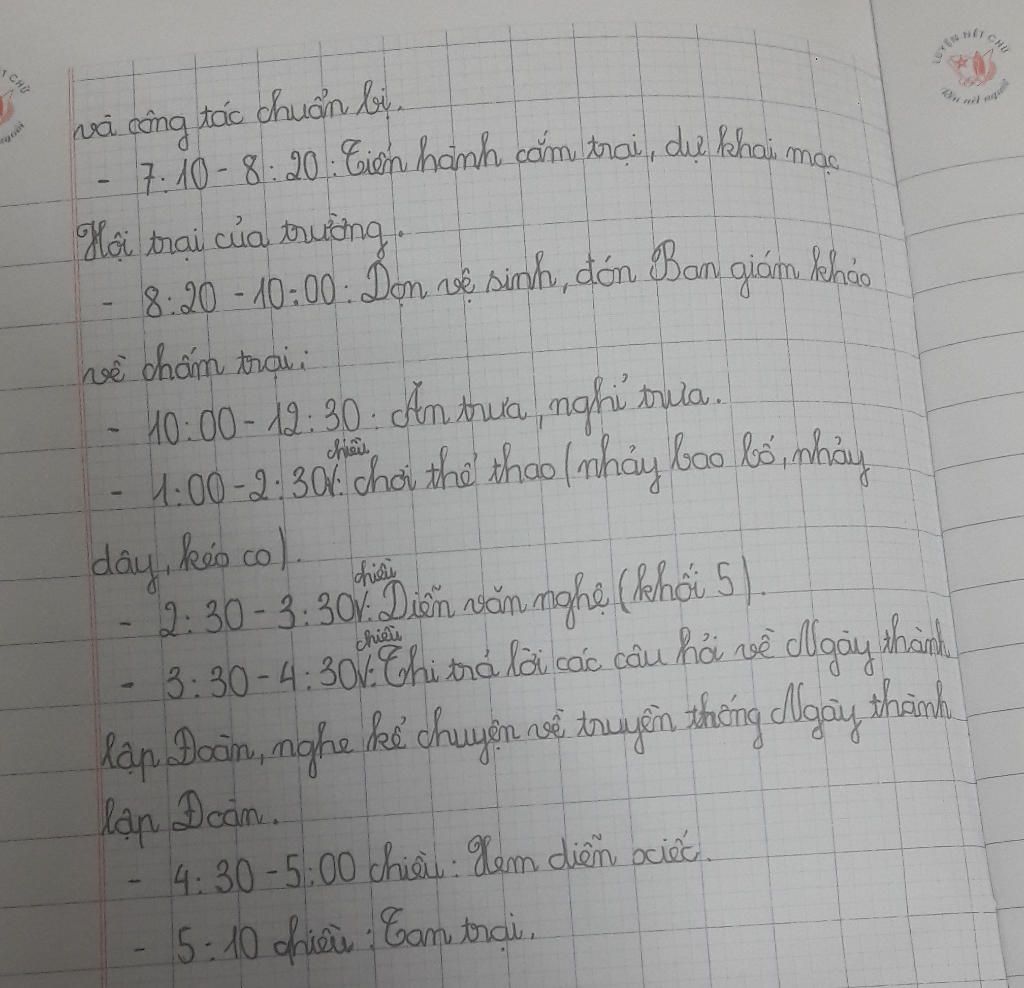 và công tác chuẩn bị.
- 7:10 - 8:20: Tiến hành cắm trại, dự khai mạc
Hội trại của trường.
- 8:20 - 10:00: Dọn vệ sinh, đón Ban giám khảo
về chấm trại.
- 10:00 - 12:30: Ăn trưa, nghỉ trưa.
- 1:00 - 2:30 chiều: chơi thể thao (nhảy bao bố, nhảy
dây, kéo co).
- 2:30 - 3:30 chiều: Diễn văn nghệ (khối 5).
- 3:30 - 4:30 chiều: Thi trả lời các câu hỏi về Ngày thành
lập Đoàn, nghe kể chuyện về truyền thống Ngày thành
lập Đoàn.
- 4:30 - 5:00 chiều: Xem diễn xiếc.
- 5:10 chiều: Tan trại.
LUYỆN NÉT CHỮ
Rèn nết người